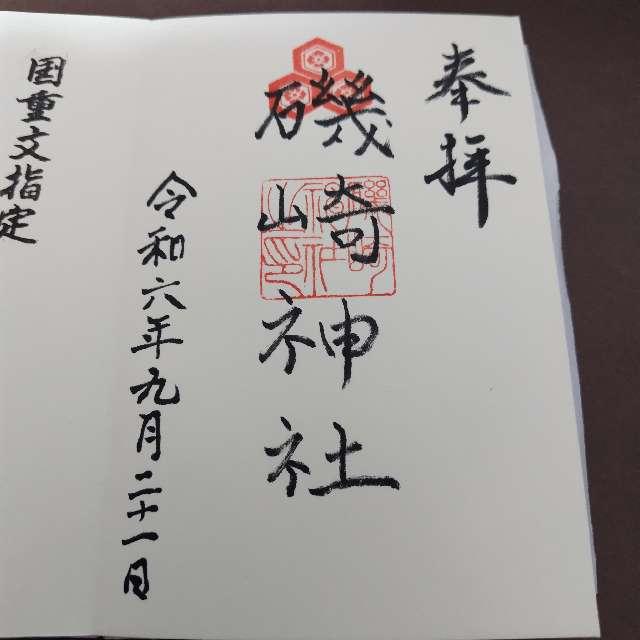 奉拝
磯崎神社
令和六年九月二十一日
国重文指定